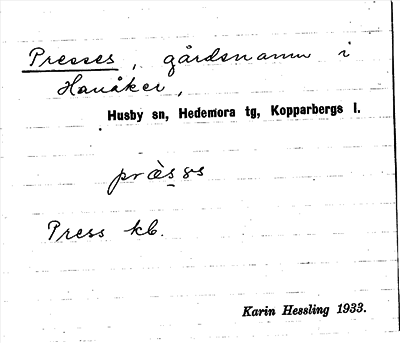 Presses, gårdsnamn i
Hanåker,
Husby sn, Hedemora tg, Kopparbergs l.
præ̀s̲ əs
Press kb.
Karin Hessling 1933.